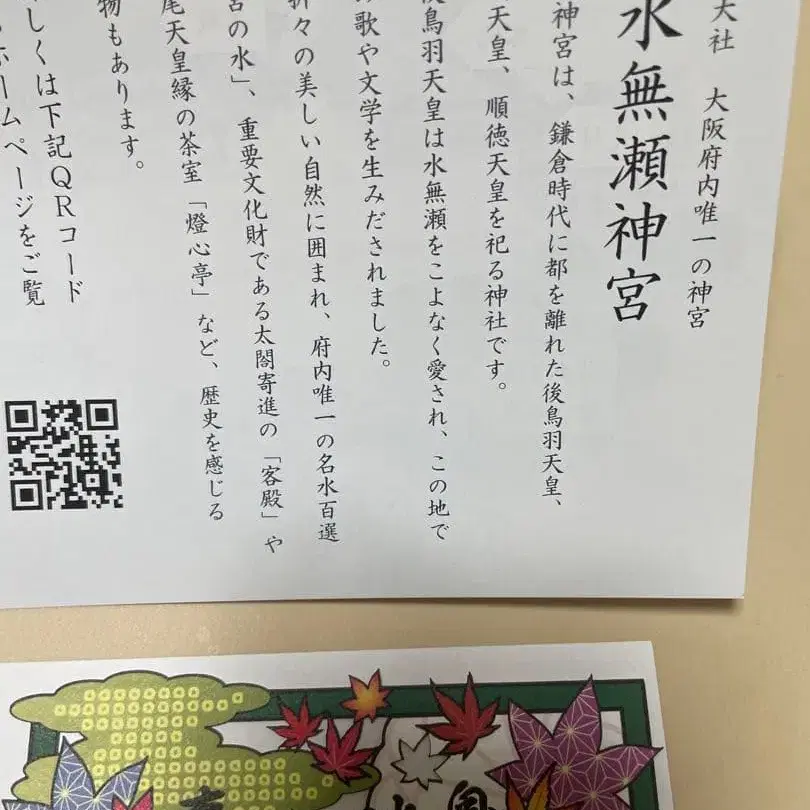 大社 大阪府内唯一の神宮
水無瀬神宮
神宮は、鎌倉時代に都を離れた後鳥羽天皇、
天皇、順徳天皇を祀る神社です。
後鳥羽天皇は水無瀬をこよなく愛され、この地で
歌や文学を生みだされました。
折々の美しい自然に囲まれ、府内唯一の名水百選
宮の水」、重要文化財である太閤寄進の「客殿」や
尾天皇縁の茶室「燈心亭」など、歴史を感じる
物もあります。
しくは下記QRコード
ホームページをご覧